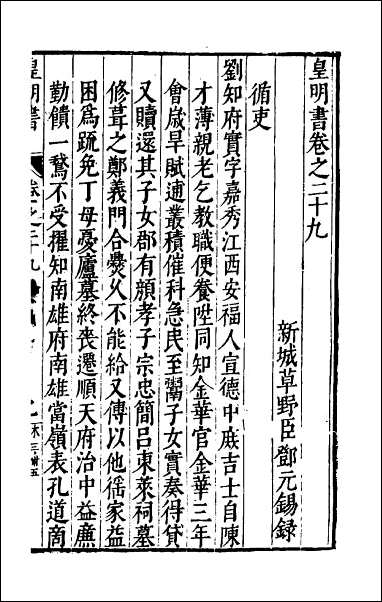 皇明書卷之二十九
新城草野臣鄧元錫録
循吏
劉知府實字嘉秀江西安福人宣德中庶吉士自陳
才薄親老乞教職便養陞同知金華官金華三年
會歲旱賦逋叢積催科急民至鬻子女實奏得貸
又贖還其子女郡有顏孝子宗忠簡呂東萊祠墓
修葺之鄭義門合爨乆不能給又傳以他徭家益
困爲䟽免丁母憂廬墓終喪還順天府治中益㢘
勤饋一鶩不受擢知南雄府南雄當嶺表孔道商
皇明書
卷之二十九